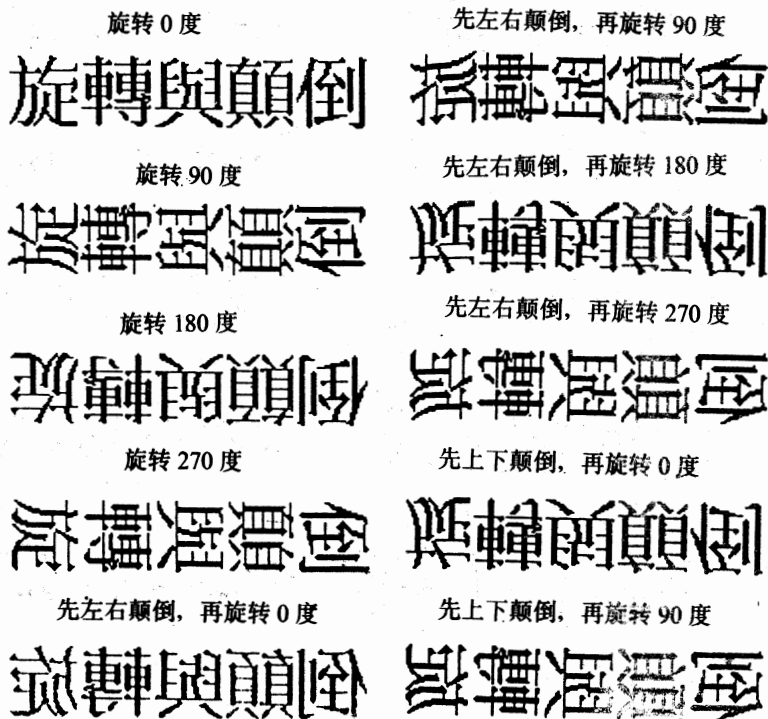 旋转 0 度
旋轉與顛倒
旋转 90 度
旋轉與顛倒
旋转 180 度
旋轉與顛倒
旋转 270 度
旋轉與顛倒
先左右颠倒，再旋转 0 度
旋轉與顛倒
先左右颠倒，再旋转 90 度
旋轉與顛倒
先左右颠倒，再旋转 180 度
旋轉與顛倒
先左右颠倒，再旋转 270 度
旋轉與顛倒
先上下颠倒，再旋转 0 度
旋轉與顛倒
先上下颠倒，再旋转 90 度
旋轉與顛倒